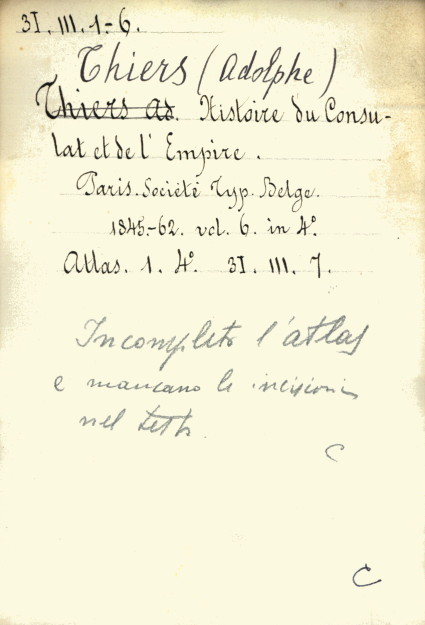 31. III. 1-6.
Thiers (Adolphe)
Thiers Ad. Histoire du Consu-
lat et de l'Empire.
Paris. Société Typ. Belge.
1845-62. vol. 6. in 4°.
Atlas. 1. 4°. 31. III. 7.
Incompleto l'atlas
e mancano le incisioni
nel testo.
C
C